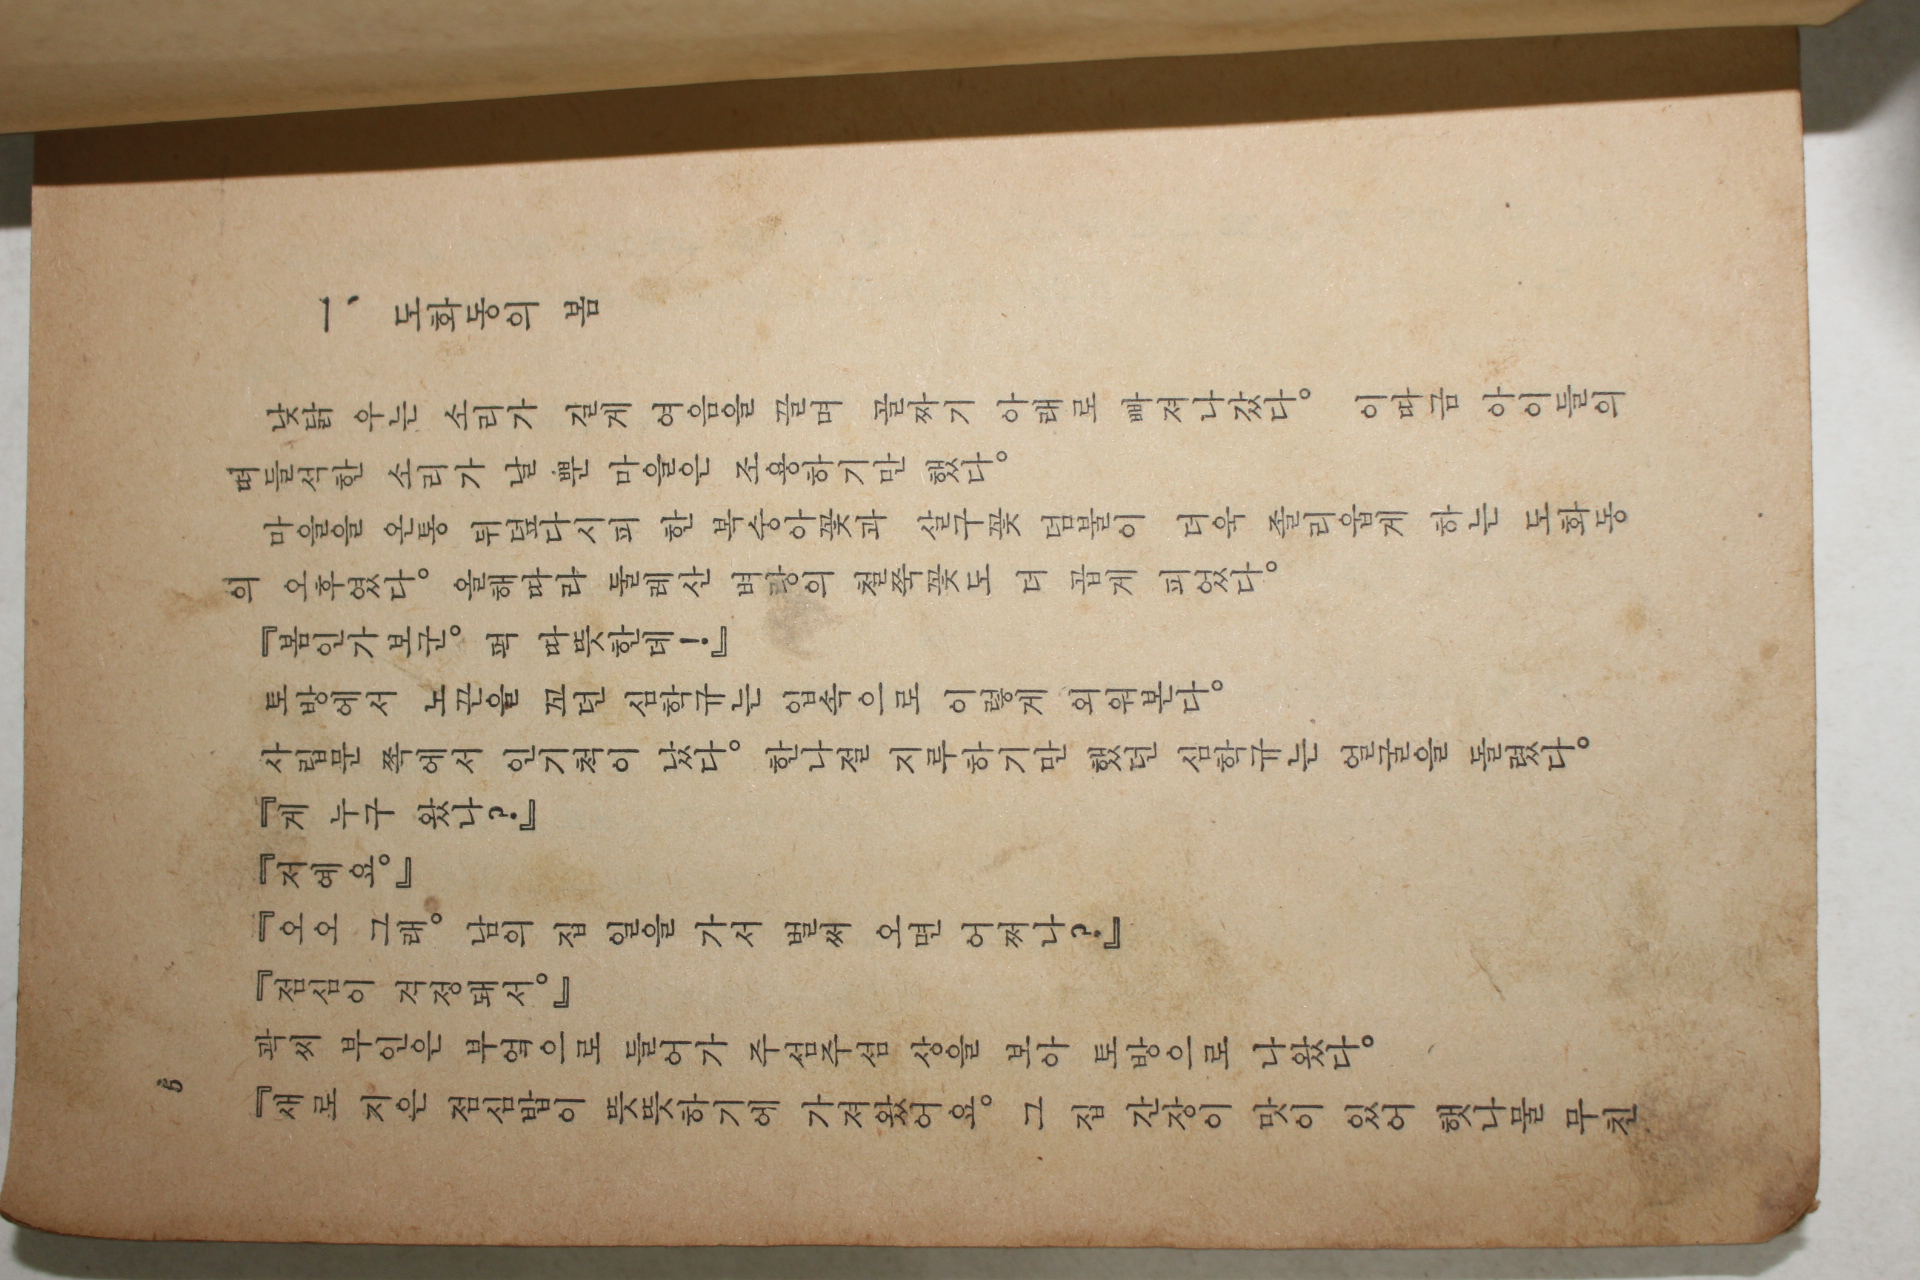 一、 도화동의 봄
낮닭 우는 소리가 길게 여음을 끌며 골짜기 아래로 빠져나갔다。 이따금 아이들의
떠들석한 소리가 날 뿐 마을은 조용하기만 했다。
마을을 온통 뒤덮다시피 한 복숭아꽃과 살구꽃 덤불이 더욱 졸리웁게 하는 도화동
의 오후였다。 올해따라 둘레산 벼랑의 철쭉꽃도 더 곱게 피었다。
『봄인가 보군。 퍽 따뜻한데!』
토방에서 노끈을 꼬던 심학규는 입속으로 이렇게 외워본다。
사립문 쪽에서 인기척이 났다。 한나절 지루하기만 했던 심학규는 얼굴을 돌렸다。
『게 누구 왔나?』
『저예요。』
『오오 그래。 남의 집 일을 가서 벌써 오면 어쩌나?』
『점심이 걱정돼서。』
곽씨 부인은 부엌으로 들어가 주섬주섬 상을 보아 토방으로 나왔다。
『새로 지은 점심밥이 뜻뜻하기에 가져왔어요。 그 집 간장이 맛이 있어 햇나물 무친
5